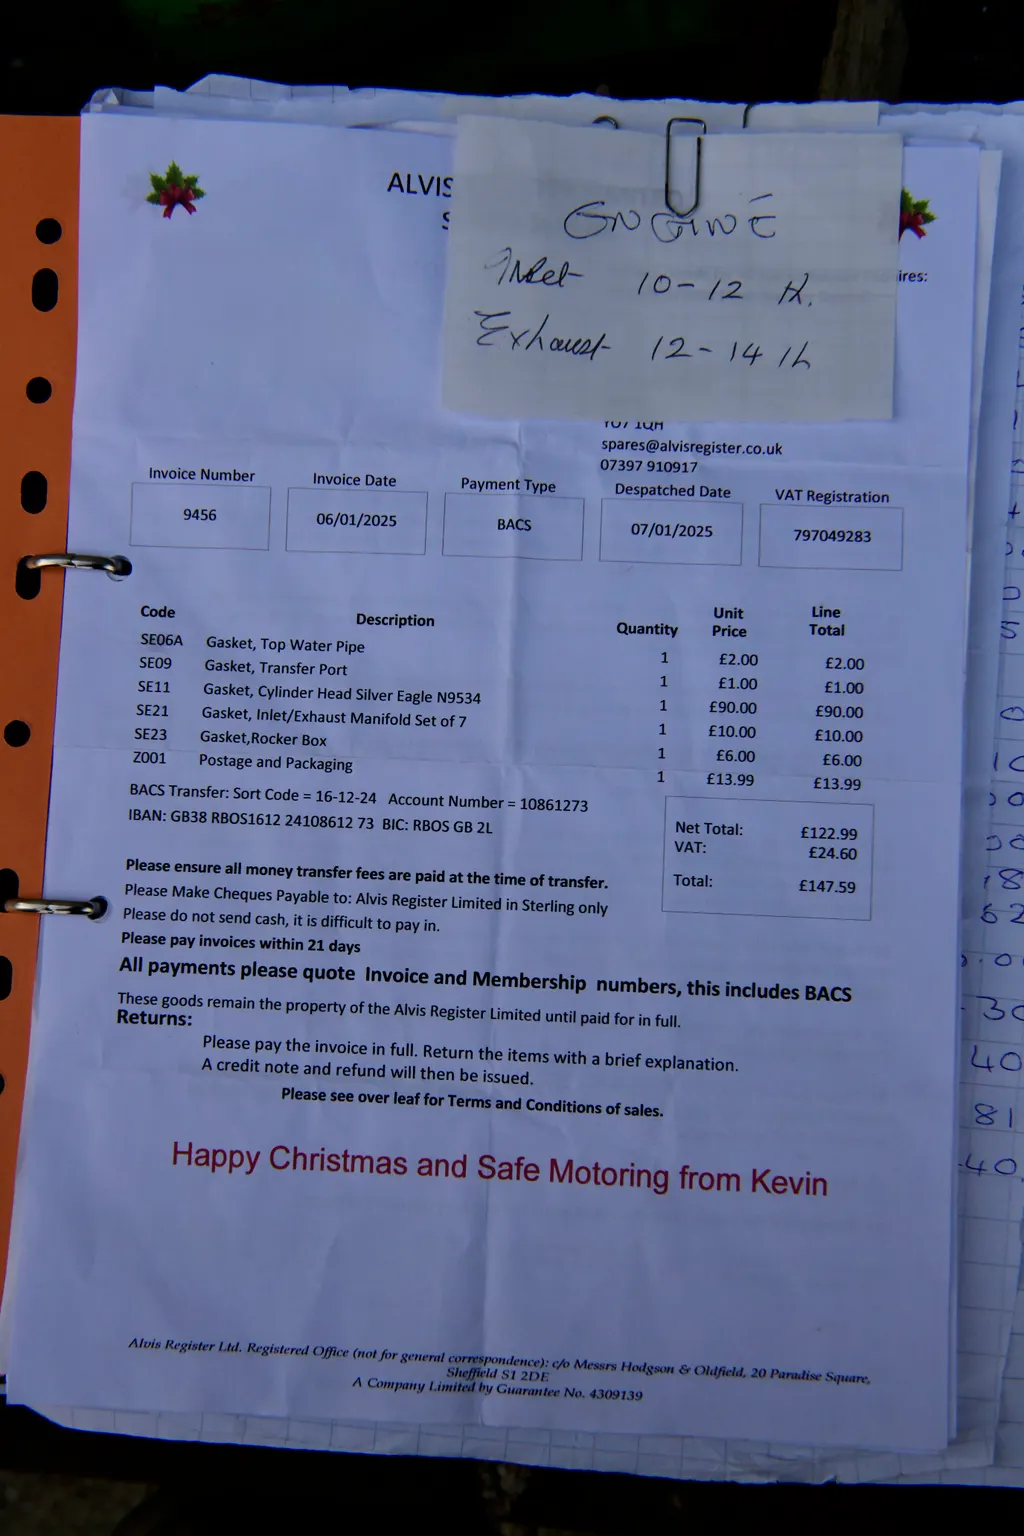 ALVIS
S
ENGINE
Inlet 10-12 th.
Exhaust 12-14 th
ires:
YO7 1QH
spares@alvisregister.co.uk
07397 910917
Invoice Number Invoice Date Payment Type Despatched Date VAT Registration
9456 06/01/2025 BACS 07/01/2025 797049283
Code Description Quantity Unit Price Line Total
SE06A Gasket, Top Water Pipe 1 £2.00 £2.00
SE09 Gasket, Transfer Port 1 £1.00 £1.00
SE11 Gasket, Cylinder Head Silver Eagle N9534 1 £90.00 £90.00
SE21 Gasket, Inlet/Exhaust Manifold Set of 7 1 £10.00 £10.00
SE23 Gasket,Rocker Box 1 £6.00 £6.00
Z001 Postage and Packaging 1 £13.99 £13.99
BACS Transfer: Sort Code = 16-12-24 Account Number = 10861273
IBAN: GB38 RBOS1612 24108612 73 BIC: RBOS GB 2L
Net Total: £122.99
VAT: £24.60
Total: £147.59
Please ensure all money transfer fees are paid at the time of transfer.
Please Make Cheques Payable to: Alvis Register Limited in Sterling only
Please do not send cash, it is difficult to pay in.
Please pay invoices within 21 days
All payments please quote Invoice and Membership numbers, this includes BACS
These goods remain the property of the Alvis Register Limited until paid for in full.
Returns:
Please pay the invoice in full. Return the items with a brief explanation.
A credit note and refund will then be issued.
Please see over leaf for Terms and Conditions of sales.
Happy Christmas and Safe Motoring from Kevin
Alvis Register Ltd. Registered Office (not for general correspondence): c/o Messrs Hodgson & Oldfield, 20 Paradise Square,
Sheffield S1 2DE
A Company Limited by Guarantee No. 4309139
30
40
81
40